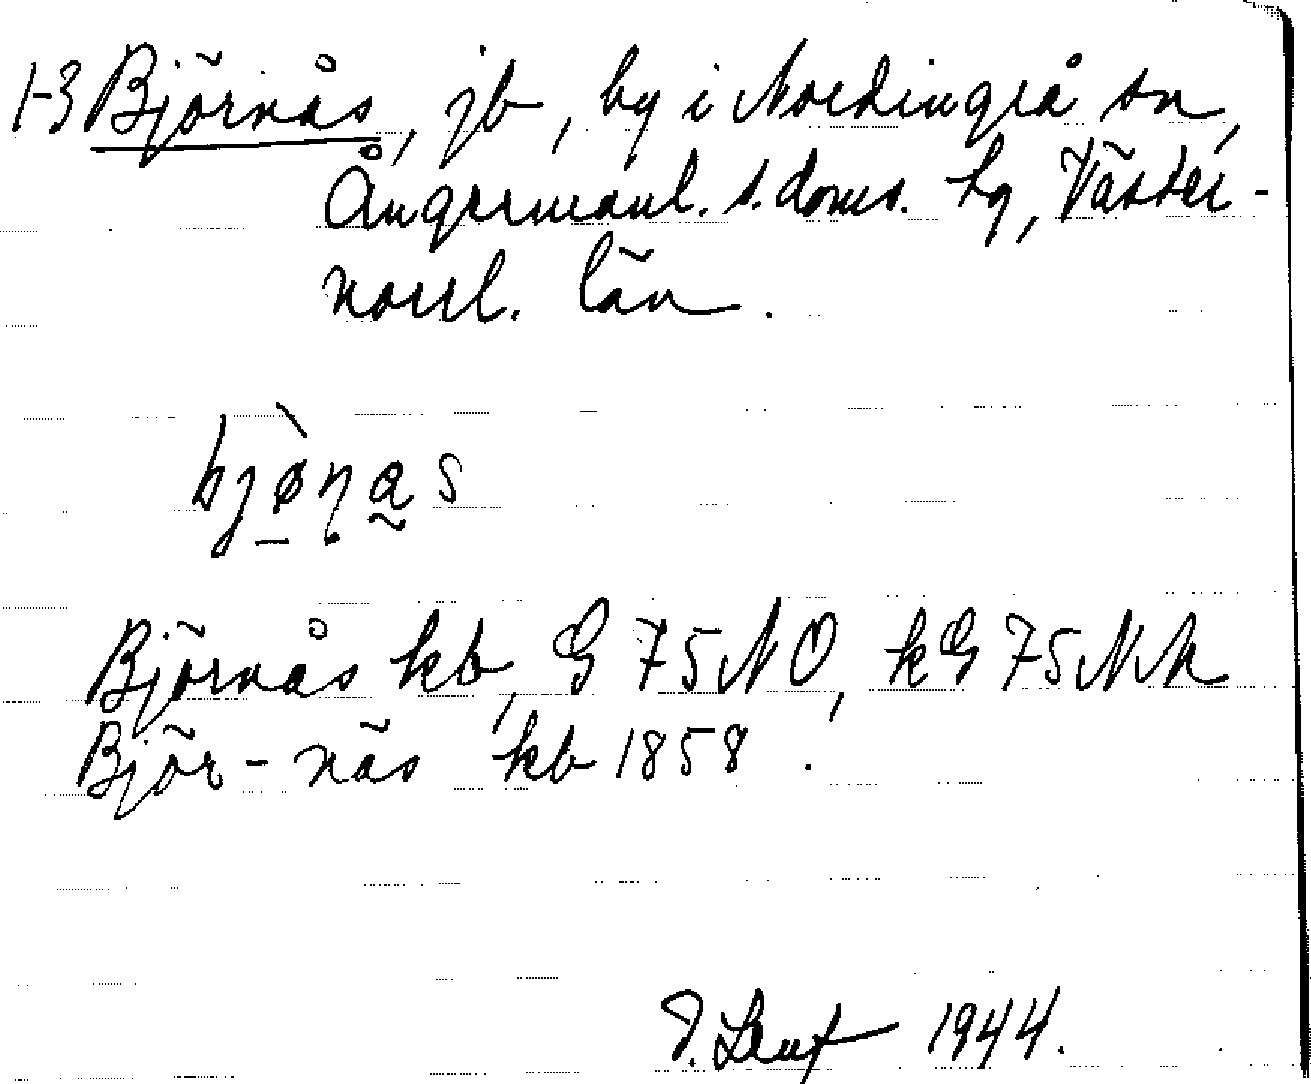 1-3 Björnås, jb, by i Nordingrå sn,
Ångermanl. s. doms. hg, Väster-
norrl. län.
bjø̠̀ṇa̰s
Björnås kb, G 75 NO, kG 75 NK
Björ-näs kb 1858.
1944.